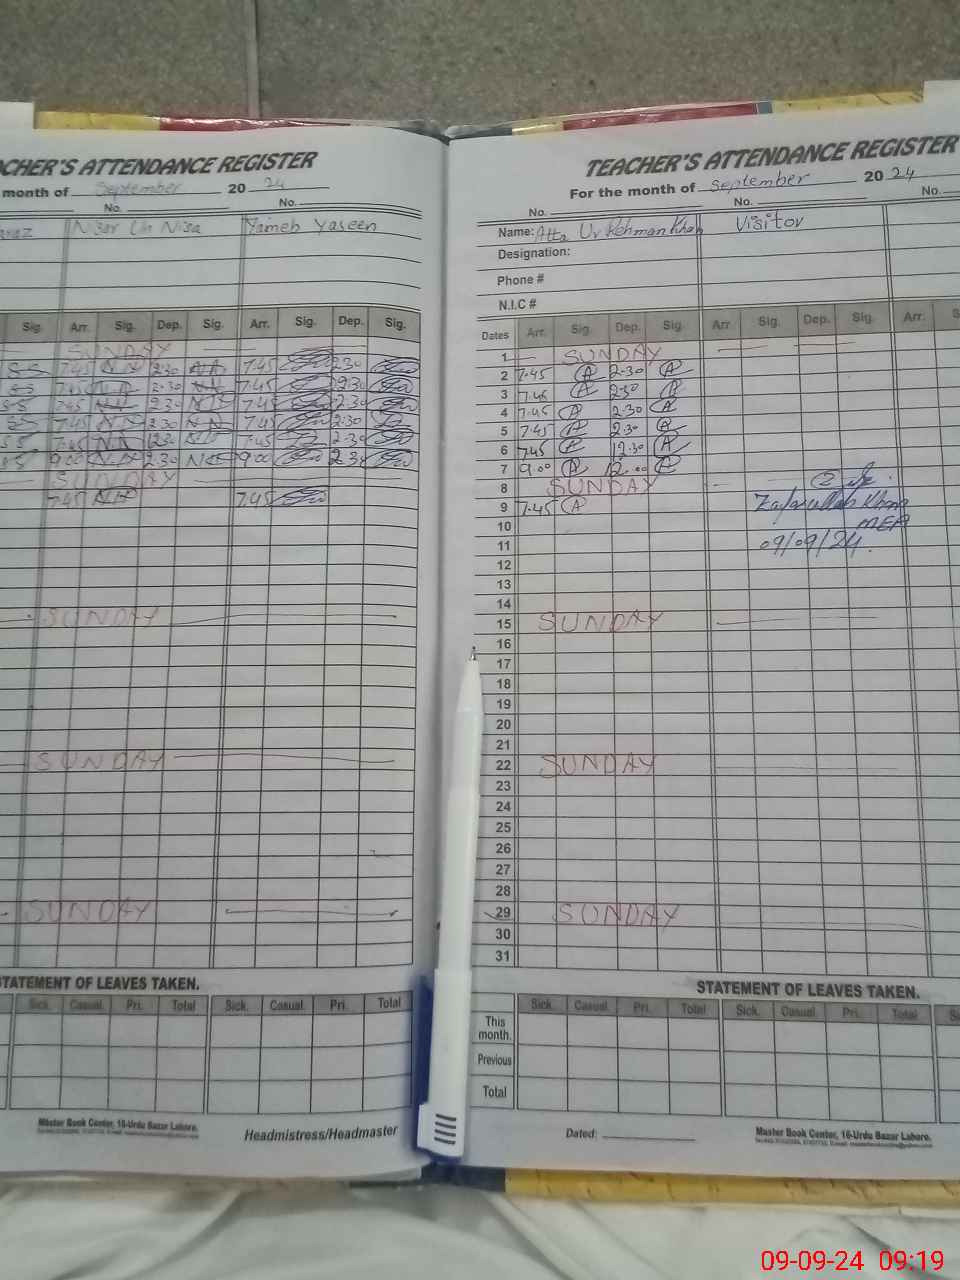 TEACHER'S ATTENDANCE REGISTER
month of September 20 24
No. No.
Nisar Un Nisa Yameh Yaseen
Sig. Arr. Sig. Dep. Sig. Arr. Sig. Dep. Sig.
SUNDAY
7.45 N.N 2.30 N.N 7.45 2.30
7.45 N.N 2.30 N.N 7.45 2.30
7.45 N.N 2.30 N.N 7.45 2.30
7.45 N.N 2.30 N.N 7.45 2.30
7.45 N.N 12.30 N.N 7.45 2.30
9.00 N.N 2.30 9.00 2.30
SUNDAY
7.45 N.N 7.45
SUNDAY
SUNDAY
SUNDAY
STATEMENT OF LEAVES TAKEN.
Sick. Casual. Pri. Total Sick. Casual. Pri. Total
Master Book Center, 16-Urdu Bazar Lahore.
Headmistress/Headmaster
TEACHER'S ATTENDANCE REGISTER
For the month of September 20 24
No. No. No.
Name: Atta Ur Rehman Khan Visitor
Designation:
Phone #
N.I.C #
Dates Arr. Sig. Dep. Sig. Arr Sig. Dep. Sig. Arr.
1 SUNDAY
2 7.45 A 2.30 A
3 7.45 A 2.30 A
4 7.45 A 2.30 A
5 7.45 A 2.30 A
6 7.45 A 12.30 A
7 9.00 A 12.00 A
8 SUNDAY
9 7.45 A Zafarullah Khan
MEA
10
11 09/09/24.
12
13
14
15 SUNDAY
16
17
18
19
20
21
22 SUNDAY
23
24
25
26
27
28
29 SUNDAY
30
31
STATEMENT OF LEAVES TAKEN.
Sick. Casual. Pri. Total Sick. Casual. Pri. Total
This month.
Previous
Total
Dated:
Master Book Center, 16-Urdu Bazar Lahore.
09-09-24 09:19